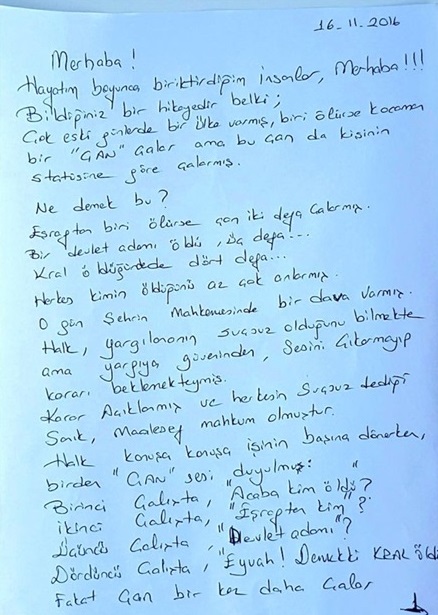 16-11-2016
Merhaba!
Hayatım boyunca biriktirdiğim insanlar, Merhaba!!!
Bildiğiniz bir hikayedir belki;
Çok eski günlerde bir ülke varmış, biri ölürse kocaman
bir "ÇAN" çalar ama bu çan da kişinin
statüsüne göre çalarmış.
Ne demek bu?
Eşraftan biri ölürse çan iki defa çalarmış.
Bir devlet adamı öldü, üç defa...
Kral öldüğünde dört defa...
Herkes kimin öldüğünü az çok anlarmış.
O gün Şehrin Mahkemesinde bir dava varmış.
Halk, yargılananın suçsuz olduğunu bilmekte
ama yargıya güveninden, Sesini Çıkarmayıp
kararı beklemekteymiş.
Karar Açıklanmış ve herkesin Suçsuz dediği
Sanık, Maalesef mahkum olmuştur.
Halk konuşa konuşa işinin başına dönerken,
birden "ÇAN" sesi duyulmuş:
Birinci Çalışta, "Acaba kim öldü?"
İkinci Çalışta, "Eşraftan kim"?
Üçüncü Çalışta, "Devlet adamı"?
Dördüncü Çalışta, "Eyvah! Demekki KRAL öldü
Fakat Çan bir kez daha Çalar
1